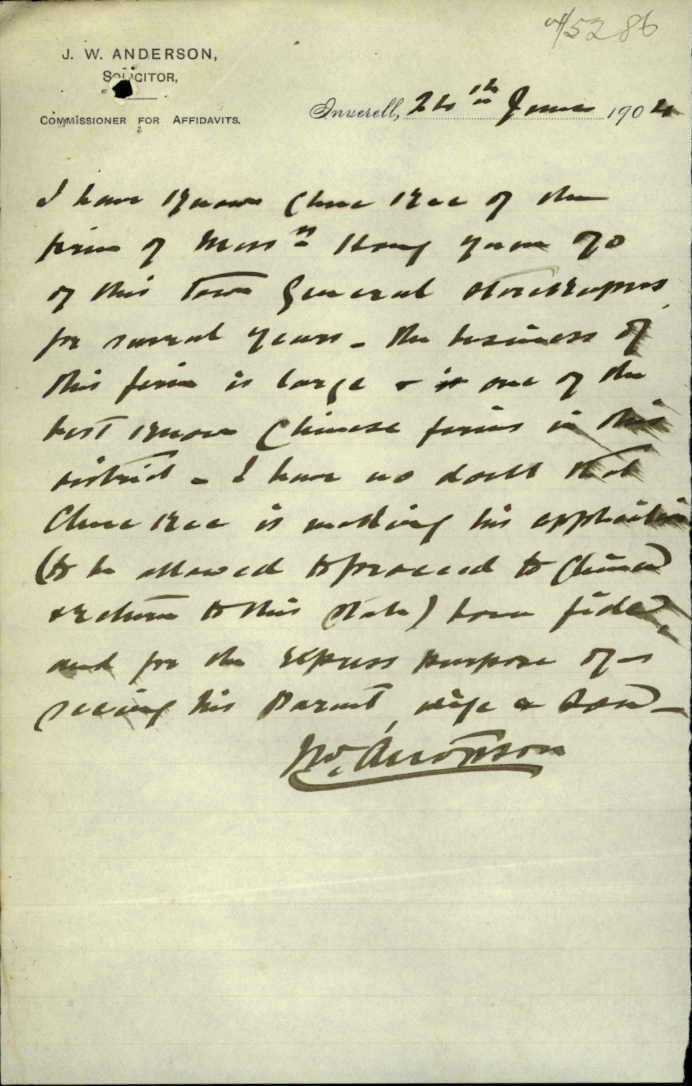 04/5286
J. W. ANDERSON,
SOLICITOR,
COMMISSIONER FOR AFFIDAVITS.
Inverell, 24th June 1904
I have known Chee Kee of the
firm of Messrs Hong Yuen & Co
of this Town General Storekeepers
for several years – the business of
this firm is large & is one of the
best known Chinese firms in this
district – I have no doubt that
Chee Kee is making his application
(to be allowed to proceed to China
& return to this State) bona fide,
and for the express purpose of
seeing his Parent, wife & son –
Jno. Anderson